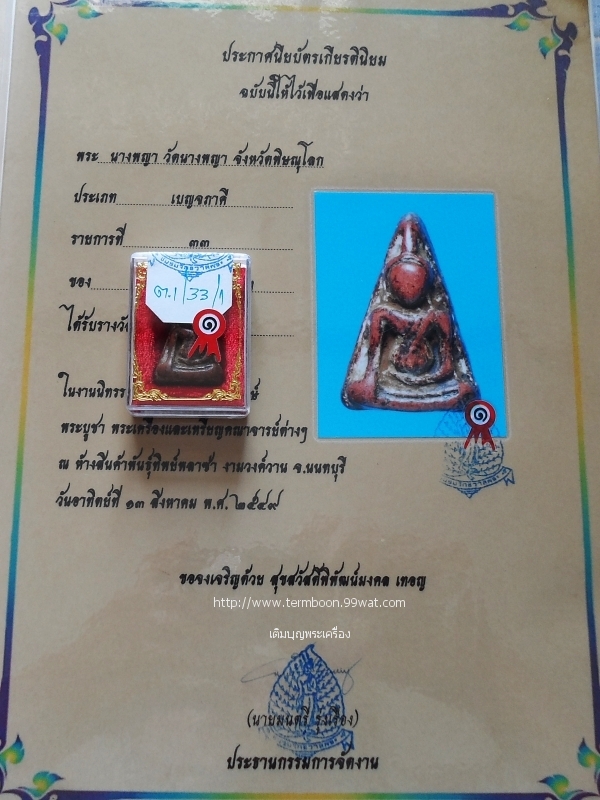 ประกาศนียบัตรเกียรตินิยม
ฉบับนี้ให้ไว้เพื่อแสดงว่า
พระ นางพญา วัดนางพญา จังหวัดพิษณุโลก
ประเภท เบญจภาคี
รายการที่ ๓๓
ของ
ต.1/33/1
๑
ได้รับรางวั
ในงานนิทรร
พระบูชา พระเครื่องและเหรียญคณาจารย์ต่างๆ
๑
ณ ห้างสินค้าพันธุ์ทิพย์พลาซ่า งามวงศ์วาน จ.นนทบุรี
วันอาทิตย์ที่ ๑๓ สิงหาคม พ.ศ.๒๕๔๙
ขอจงเจริญด้วย สุขสวัสดิ์พิพัฒน์มงคล เทอญ
http://www.termboon.99wat.com
เติมบุญพระเครื่อง
(นายมนตรี รุ่งเรือง)
ประธานกรรมการจัดงาน